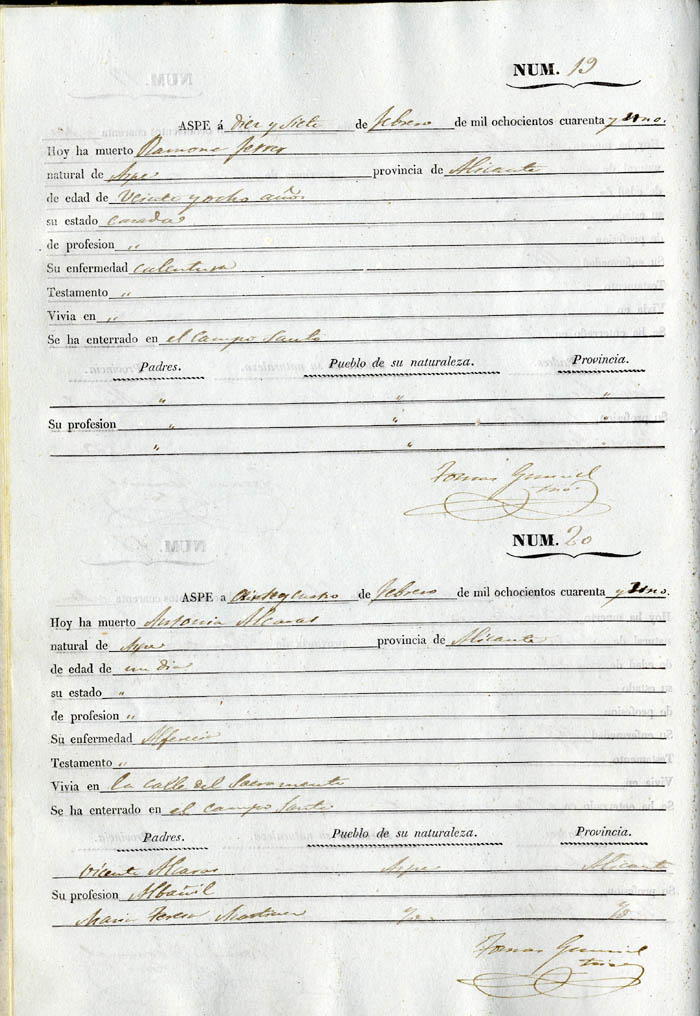 NUM. 19
ASPE á Diez y Siete de febrero de mil ochocientos cuarenta y uno.
Hoy ha muerto Ramona
natural de Aspe provincia de Alicante
de edad de veinte y ocho años
su estado casada
de profesion "
Su enfermedad calentura
Testamento "
Vivia en "
Se ha enterrado en el campo Santo
Padres. Pueblo de su naturaleza. Provincia.
" " "
Su profesion " " "
" " "
Tomas
NUM. 20
ASPE a de febrero de mil ochocientos cuarenta y uno.
Hoy ha muerto Antonia Alcaras
natural de Aspe provincia de Alicante
de edad de un dia
su estado "
de profesion "
Su enfermedad Alferecia
Testamento "
Vivia en la calle del Sacramento
Se ha enterrado en el campo Santo
Padres. Pueblo de su naturaleza. Provincia.
Vicente Alcaras Aspe Alicante
Su profesion Albañil
Maria Teresa Martinez
Tomas